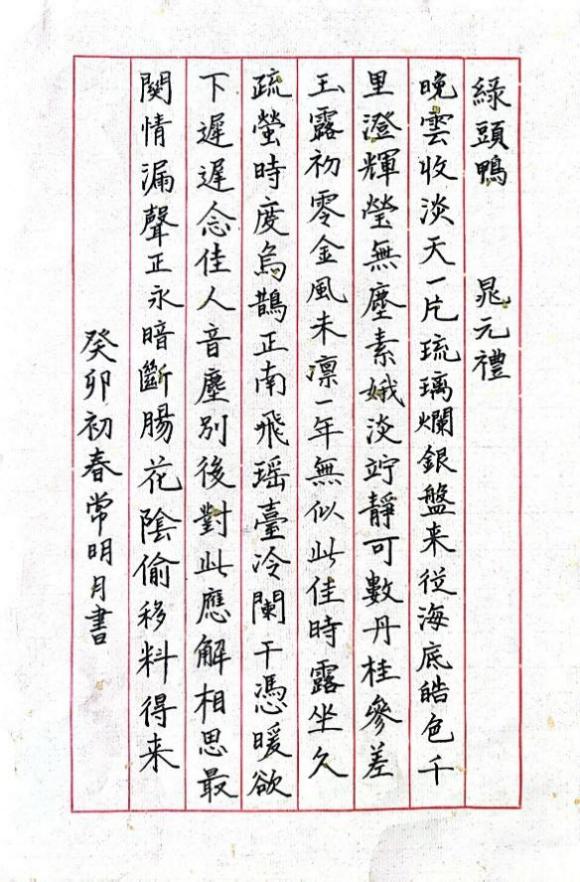 綠頭鴨 晁元禮
晚雲收淡天一片琉璃爛銀盤来從海底皓色千
里澄輝瑩無塵素娥淡竚靜可數丹桂參差
玉露初零金風未凛一年無似此佳時露坐久
疏螢時度烏鵲正南飛瑶臺冷闌干憑暖欲
下遲遲念佳人音塵別後對此應解相思最
關情漏聲正永暗斷腸花陰偷移料得来
癸卯初春常明月書